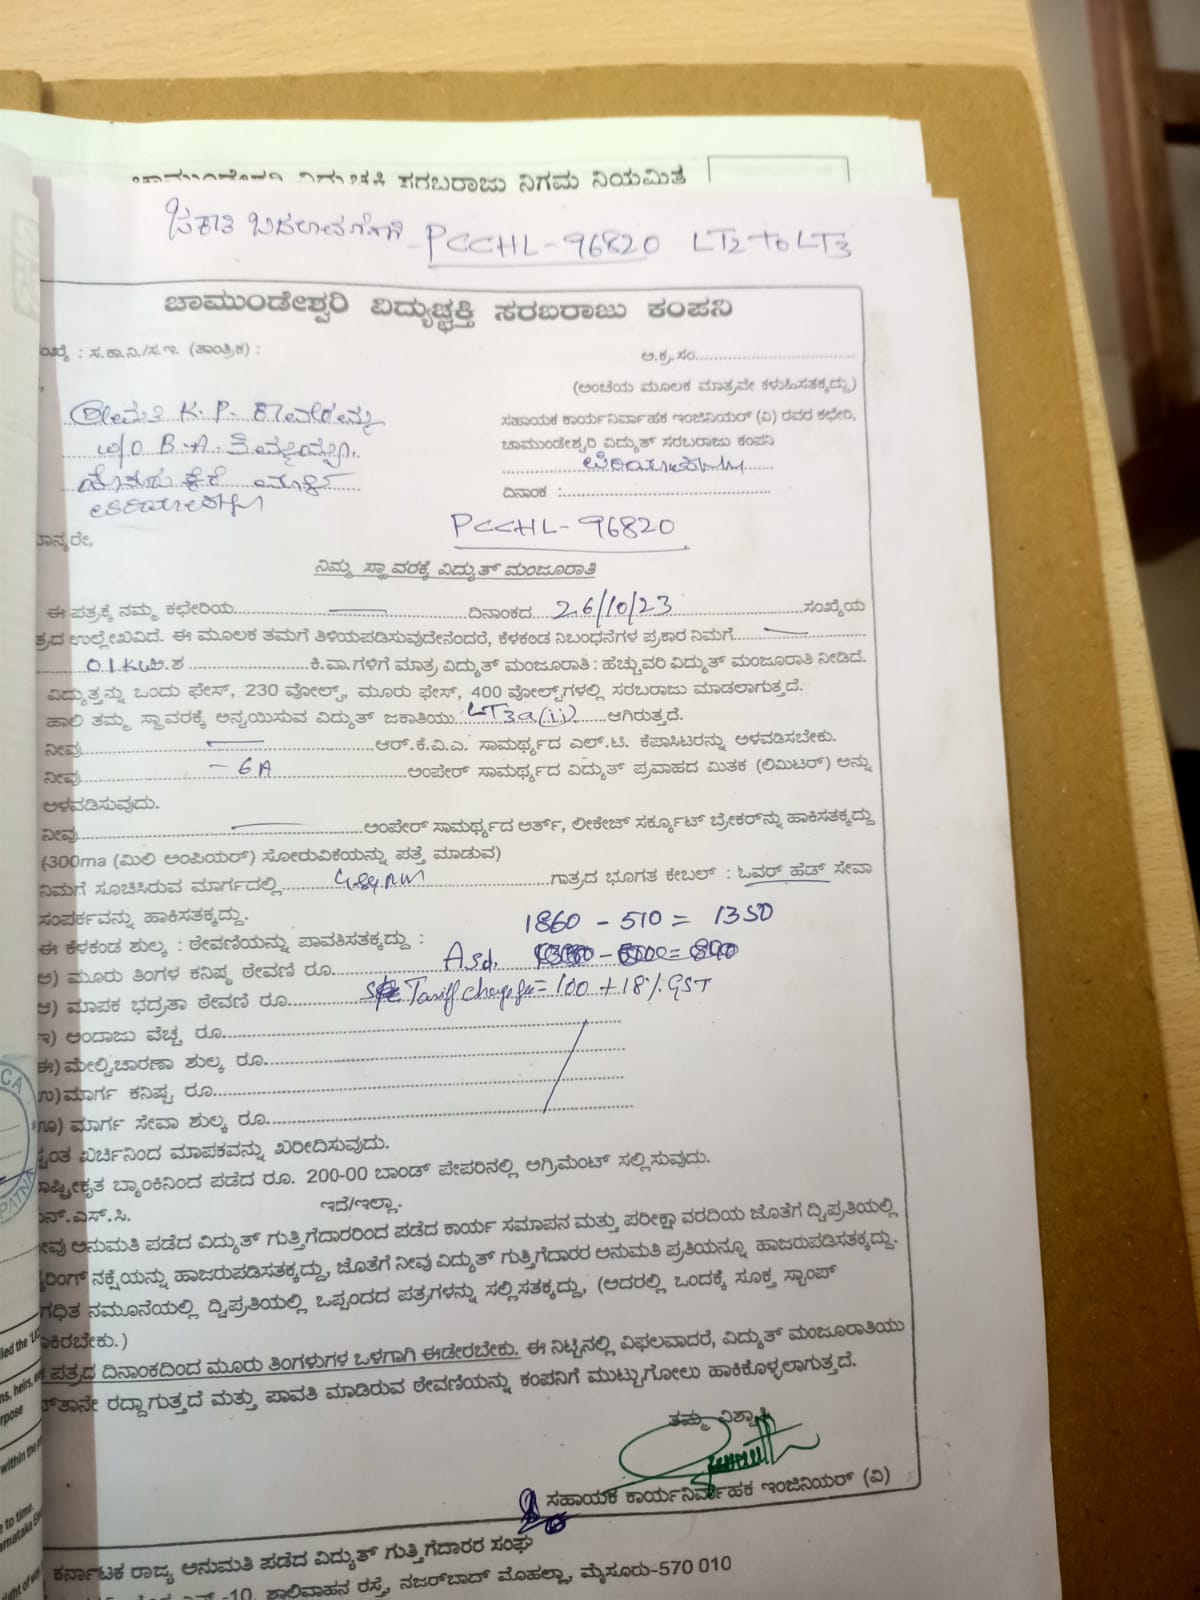 ಸರಬರಾಜು ನಿಗಮ ನಿಯಮಿತ
ಜಕಾತಿ ಬದಲಾವಣೆಗಾಗಿ PCCHL-96820 LT2 to LT3
ಚಾಮುಂಡೇಶ್ವರಿ ವಿದ್ಯುಚ್ಛಕ್ತಿ ಸರಬರಾಜು ಕಂಪನಿ
ಸ.ಕಾ.ನಿ./ಸ.ಇ. (ತಾಂತ್ರಿಕ) :
ಅ.ಕ್ರ.ಸಂ.
(ಅಂಚೆಯ ಮೂಲಕ ಮಾತ್ರವೇ ಕಳುಹಿಸತಕ್ಕದ್ದು)
ಶ್ರೀಮತಿ K. P.
W/O B.A.
ಸಹಾಯಕ ಕಾರ್ಯನಿರ್ವಾಹಕ ಇಂಜಿನಿಯರ್ (ವಿ) ರವರ ಕಛೇರಿ,
ಚಾಮುಂಡೇಶ್ವರಿ ವಿದ್ಯುತ್ ಸರಬರಾಜು ಕಂಪನಿ
ದಿನಾಂಕ :
PCCHL-96820
ಮಾನ್ಯರೇ,
ನಿಮ್ಮ ಸ್ಥಾವರಕ್ಕೆ ವಿದ್ಯುತ್ ಮಂಜೂರಾತಿ
ಈ ಪತ್ರಕ್ಕೆ ನಮ್ಮ ಕಛೇರಿಯ ದಿನಾಂಕದ 26/10/23 ಸಂಖ್ಯೆಯ
ಪತ್ರದ ಉಲ್ಲೇಖವಿದೆ. ಈ ಮೂಲಕ ತಮಗೆ ತಿಳಿಯಪಡಿಸುವುದೇನೆಂದರೆ, ಕೆಳಕಂಡ ನಿಬಂಧನೆಗಳ ಪ್ರಕಾರ ನಿಮಗೆ
01 Kw ಅ.ಶ ಕಿ.ವಾ.ಗಳಿಗೆ ಮಾತ್ರ ವಿದ್ಯುತ್ ಮಂಜೂರಾತಿ : ಹೆಚ್ಚುವರಿ ವಿದ್ಯುತ್ ಮಂಜೂರಾತಿ ನೀಡಿದೆ.
ವಿದ್ಯುತ್ತನ್ನು ಒಂದು ಫೇಸ್, 230 ವೋಲ್ಟ್, ಮೂರು ಫೇಸ್, 400 ವೋಲ್ಟ್‌ಗಳಲ್ಲಿ ಸರಬರಾಜು ಮಾಡಲಾಗುತ್ತದೆ.
ಹಾಲಿ ತಮ್ಮ ಸ್ಥಾವರಕ್ಕೆ ಅನ್ವಯಿಸುವ ವಿದ್ಯುತ್ ಜಕಾತಿಯು LT3a(ii) ಆಗಿರುತ್ತದೆ.
ನೀವು ಆರ್.ಕೆ.ವಿ.ಎ. ಸಾಮರ್ಥ್ಯದ ಎಲ್.ಟಿ. ಕೆಪಾಸಿಟರನ್ನು ಅಳವಡಿಸಬೇಕು.
ನೀವು - 6A ಅಂಪೇರ್ ಸಾಮರ್ಥ್ಯದ ವಿದ್ಯುತ್ ಪ್ರವಾಹದ ಮಿತಕ (ಲಿಮಿಟರ್) ಅನ್ನು
ಅಳವಡಿಸುವುದು.
ನೀವು ಅಂಪೇರ್ ಸಾಮರ್ಥ್ಯದ ಅರ್ತ್, ಲೀಕೇಜ್ ಸರ್ಕ್ಯೂಟ್ ಬ್ರೇಕರ್‌ನ್ನು ಹಾಕಿಸತಕ್ಕದ್ದು
(300ma (ಮಿಲಿ ಅಂಪಿಯರ್) ಸೋರುವಿಕೆಯನ್ನು ಪತ್ತೆ ಮಾಡುವ)
ನಿಮಗೆ ಸೂಚಿಸಿರುವ ಮಾರ್ಗದಲ್ಲಿ ಗಾತ್ರದ ಭೂಗತ ಕೇಬಲ್ : ಓವರ್ ಹೆಡ್ ಸೇವಾ
ಸಂಪರ್ಕವನ್ನು ಹಾಕಿಸತಕ್ಕದ್ದು.
1860 - 510 = 1350
ಈ ಕೆಳಕಂಡ ಶುಲ್ಕ : ಠೇವಣಿಯನ್ನು ಪಾವತಿಸತಕ್ಕದ್ದು :
ಅ) ಮೂರು ತಿಂಗಳ ಕನಿಷ್ಠ ಠೇವಣಿ ರೂ. Asd.
ಆ) ಮಾಪಕ ಭದ್ರತಾ ಠೇವಣಿ ರೂ. Tariff charge fee = 100 + 18% GST
ಇ) ಅಂದಾಜು ವೆಚ್ಚ ರೂ.
ಈ) ಮೇಲ್ವಿಚಾರಣಾ ಶುಲ್ಕ ರೂ.
ಉ) ಮಾರ್ಗ ಕನಿಷ್ಟ ರೂ.
ಊ) ಮಾರ್ಗ ಸೇವಾ ಶುಲ್ಕ ರೂ.
ಸ್ವಂತ ಖರ್ಚಿನಿಂದ ಮಾಪಕವನ್ನು ಖರೀದಿಸುವುದು.
ರಾಷ್ಟ್ರೀಕೃತ ಬ್ಯಾಂಕಿನಿಂದ ಪಡೆದ ರೂ. 200-00 ಬಾಂಡ್ ಪೇಪರಿನಲ್ಲಿ ಅಗ್ರಿಮೆಂಟ್ ಸಲ್ಲಿಸುವುದು.
ಎನ್.ಎಸ್.ಸಿ. ಇದೆ/ಇಲ್ಲಾ.
ನೀವು ಅನುಮತಿ ಪಡೆದ ವಿದ್ಯುತ್ ಗುತ್ತಿಗೆದಾರರಿಂದ ಪಡೆದ ಕಾರ್ಯ ಸಮಾಪನ ಮತ್ತು ಪರೀಕ್ಷಾ ವರದಿಯ ಜೊತೆಗೆ ದ್ವಿಪ್ರತಿಯಲ್ಲಿ
ವೈರಿಂಗ್ ನಕ್ಷೆಯನ್ನು ಹಾಜರುಪಡಿಸತಕ್ಕದ್ದು, ಜೊತೆಗೆ ನೀವು ವಿದ್ಯುತ್ ಗುತ್ತಿಗೆದಾರರ ಅನುಮತಿ ಪ್ರತಿಯನ್ನೂ ಹಾಜರುಪಡಿಸತಕ್ಕದ್ದು.
ನಿಗಧಿತ ನಮೂನೆಯಲ್ಲಿ ದ್ವಿಪ್ರತಿಯಲ್ಲಿ ಒಪ್ಪಂದದ ಪತ್ರಗಳನ್ನು ಸಲ್ಲಿಸತಕ್ಕದ್ದು, (ಅದರಲ್ಲಿ ಒಂದಕ್ಕೆ ಸೂಕ್ತ ಸ್ಟಾಂಪ್
ಹಾಕಿರಬೇಕು.)
ಪತ್ರದ ದಿನಾಂಕದಿಂದ ಮೂರು ತಿಂಗಳುಗಳ ಒಳಗಾಗಿ ಈಡೇರಬೇಕು. ಈ ನಿಟ್ಟಿನಲ್ಲಿ ವಿಫಲವಾದರೆ, ವಿದ್ಯುತ್ ಮಂಜೂರಾತಿಯು
ತಾನೇ ರದ್ದಾಗುತ್ತದೆ ಮತ್ತು ಪಾವತಿ ಮಾಡಿರುವ ಠೇವಣಿಯನ್ನು ಕಂಪನಿಗೆ ಮುಟ್ಟುಗೋಲು ಹಾಕಿಕೊಳ್ಳಲಾಗುತ್ತದೆ.
ತಮ್ಮ ವಿಶ್ವಾಸಿ
ಸಹಾಯಕ ಕಾರ್ಯನಿರ್ವಾಹಕ ಇಂಜಿನಿಯರ್ (ವಿ)
ಕರ್ನಾಟಕ ರಾಜ್ಯ ಅನುಮತಿ ಪಡೆದ ವಿದ್ಯುತ್ ಗುತ್ತಿಗೆದಾರರ ಸಂಘ
-10, ಶಾಲಿವಾಹನ ರಸ್ತೆ, ನಜರ್‌ಬಾದ್ ಮೊಹಲ್ಲಾ, ಮೈಸೂರು-570 010